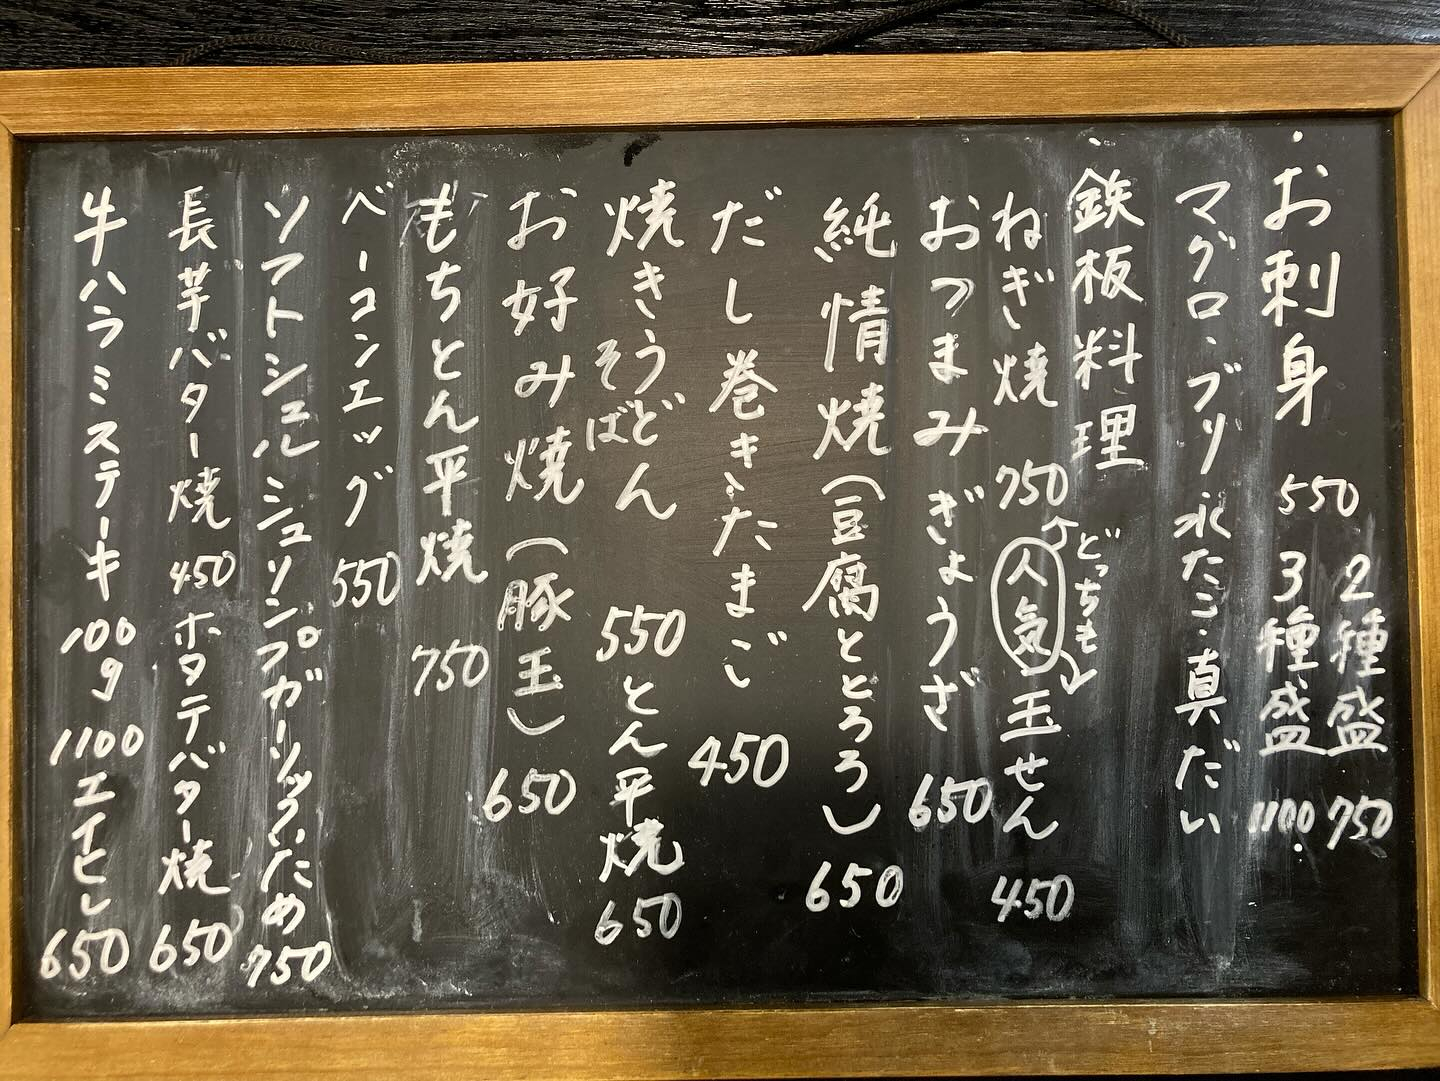 ・お刺身 550 2種盛 750
3種盛 1100.
マグロ・ブリ 水たこ・真だい
・鉄板料理
ねぎ焼 750 人気 玉せん 450
どっちも
おつまみぎょうざ 650
純情焼(豆腐ととろろ) 650
だし巻きたまご 450
焼きうどん 550 とん平焼 650
そば
お好み焼(豚玉) 650
もちとん平焼 750
ベーコンエッグ 550
ソフトシェルシュリンプガーリックいため 750
長芋バター焼 450 ホタテバター焼 650
牛ハラミステーキ 100g 1100 エイヒレ 650